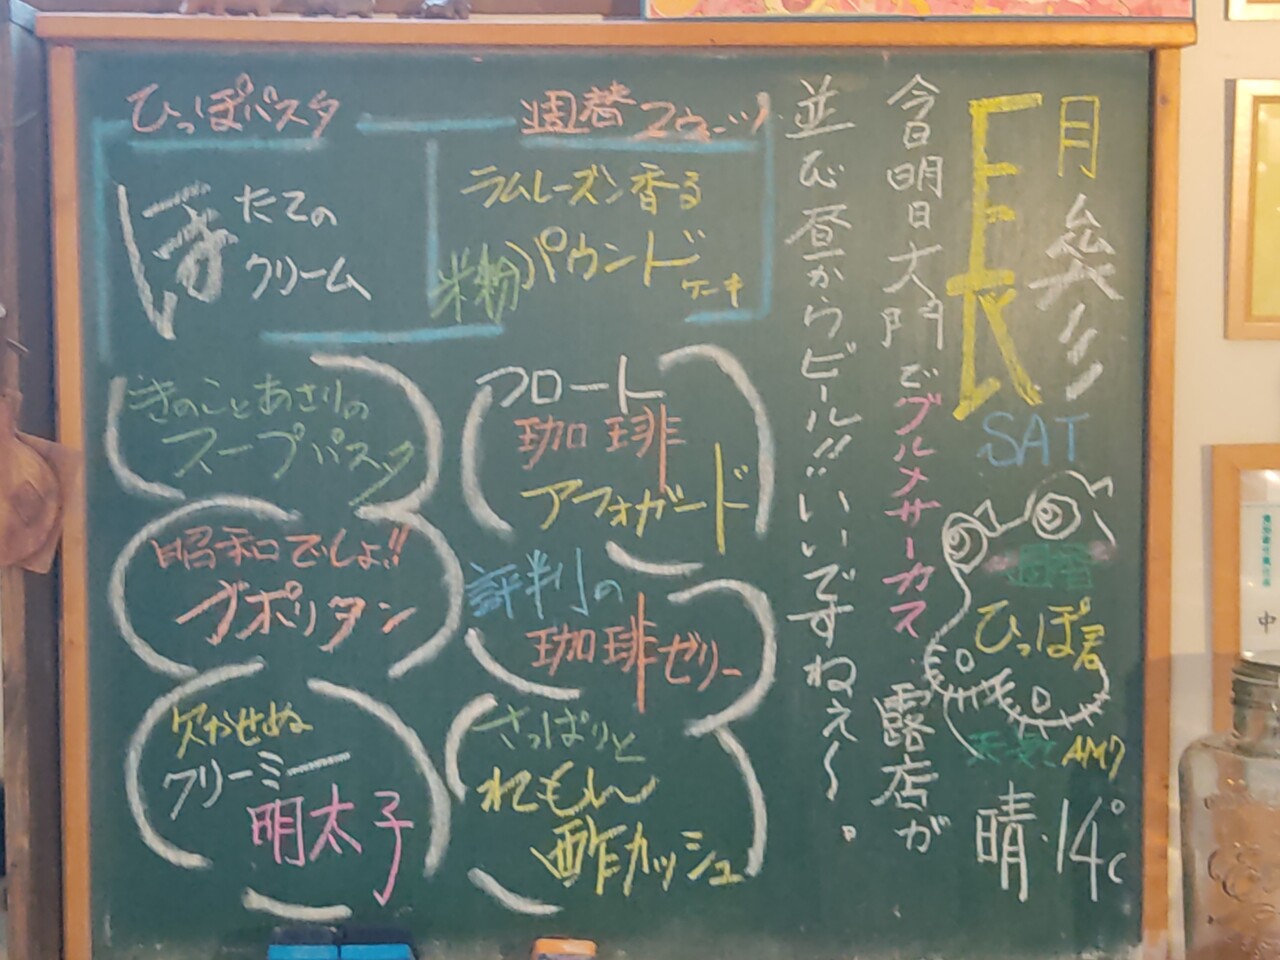 ひっぽパスタ
ほたての
クリーム
きのことあさりの
スープパスタ
昭和でしょ!!
ナポリタン
欠かせぬ
クリーミー
明太子
週替スウィーツ
ラムレーズン香る
米粉パウンド
ケーキ
フロート
珈琲
アフォガード
評判の
珈琲ゼリー
さっぱりと
れもん
酢カッシュ
月
参
長
SAT
今日明日大門でブルメサーカス 露店が
並び昼からビール!!いいですねぇ〜。
週替
ひっぽ君
天気 AM7
晴・14℃